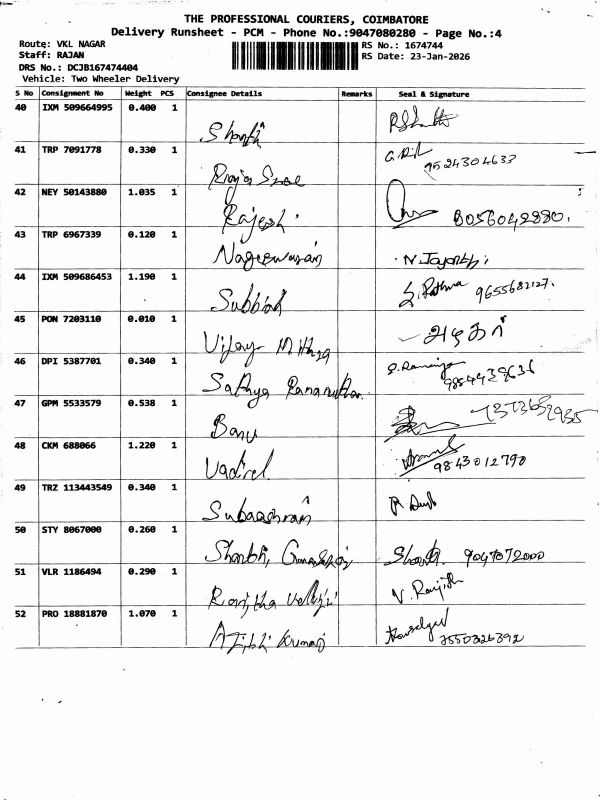 THE PROFESSIONAL COURIERS, COIMBATORE
Delivery Runsheet - PCM - Phone No.:9047080280 - Page No.:4
Route: VKL NAGAR
RS No.: 1674744
Staff: RAJAN
RS Date: 23-Jan-2026
DRS No.: DCJB167474404
Vehicle: Two Wheeler Delivery
S No Consignment No Weight PCS Consignee Details Remarks Seal & Signature
40 IXM 509664995 0.400 1
41 TRP 7091778 0.330 1
9524304633
42 NEY 50143880 1.035 1
Rajesh 8056042880.
43 TRP 6967339 0.120 1
Nageswaran N. Jayanthi
44 IXM 509686453 1.190 1
Subbiah 9655682127.
45 PON 7203110 0.010 1
Vijay
46 DPI 5387701 0.340 1
Sathya
47 GPM 5533579 0.538 1
Banu
48 CKM 688066 1.220 1
9843012790
49 TRZ 113443549 0.340 1
50 STY 8067000 0.260 1
Shanthi, 9047072000
51 VLR 1186494 0.290 1
Ranjitha V. Ranjith
52 PRO 18881870 1.070 1
Kumar 7550326392